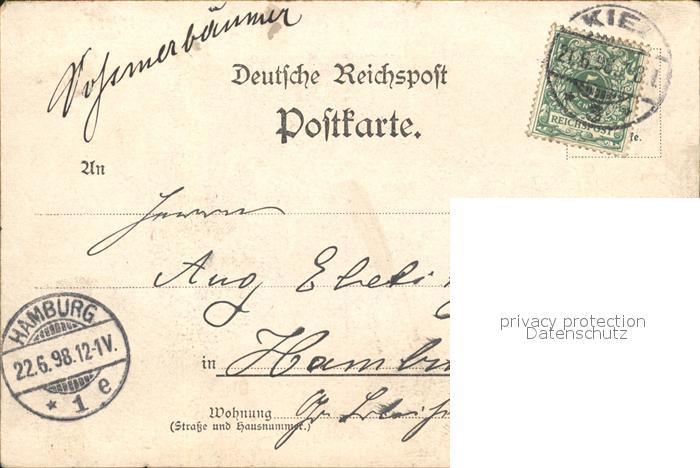 KIEL
21.6.98. 8-
Deutsche Reichspost
Postkarte.
5
REICHSPOST
An
Herrn
Aug
in Hambu
Wohnung
(Straße und Hausnummer.)
Gr
HAMBURG
22.6.98.12-1V.
* 1 e
privacy protection
Datenschutz